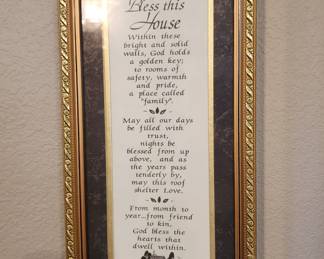 Bless this
House
Within these
bright and solid
walls, God holds
a golden key;
to rooms of
safety, warmth
and pride,
a place called
"family".
May all our days
be filled with
trust,
nights be
blessed from up
above, and as
the years pass
tenderly by,
may this roof
shelter Love.
From month to
year...from friend
to kin,
God bless the
hearts that
dwell within.